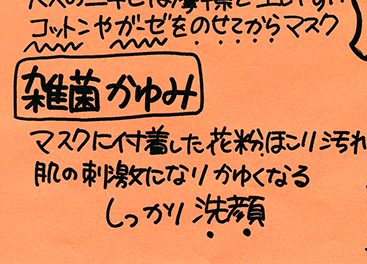 大人のニキビは摩擦と
コットンやガーゼをのせてからマスク
雑菌かゆみ
マスクに付着した花粉ほこり汚れ
肌の刺激になりかゆくなる
しっかり洗顔